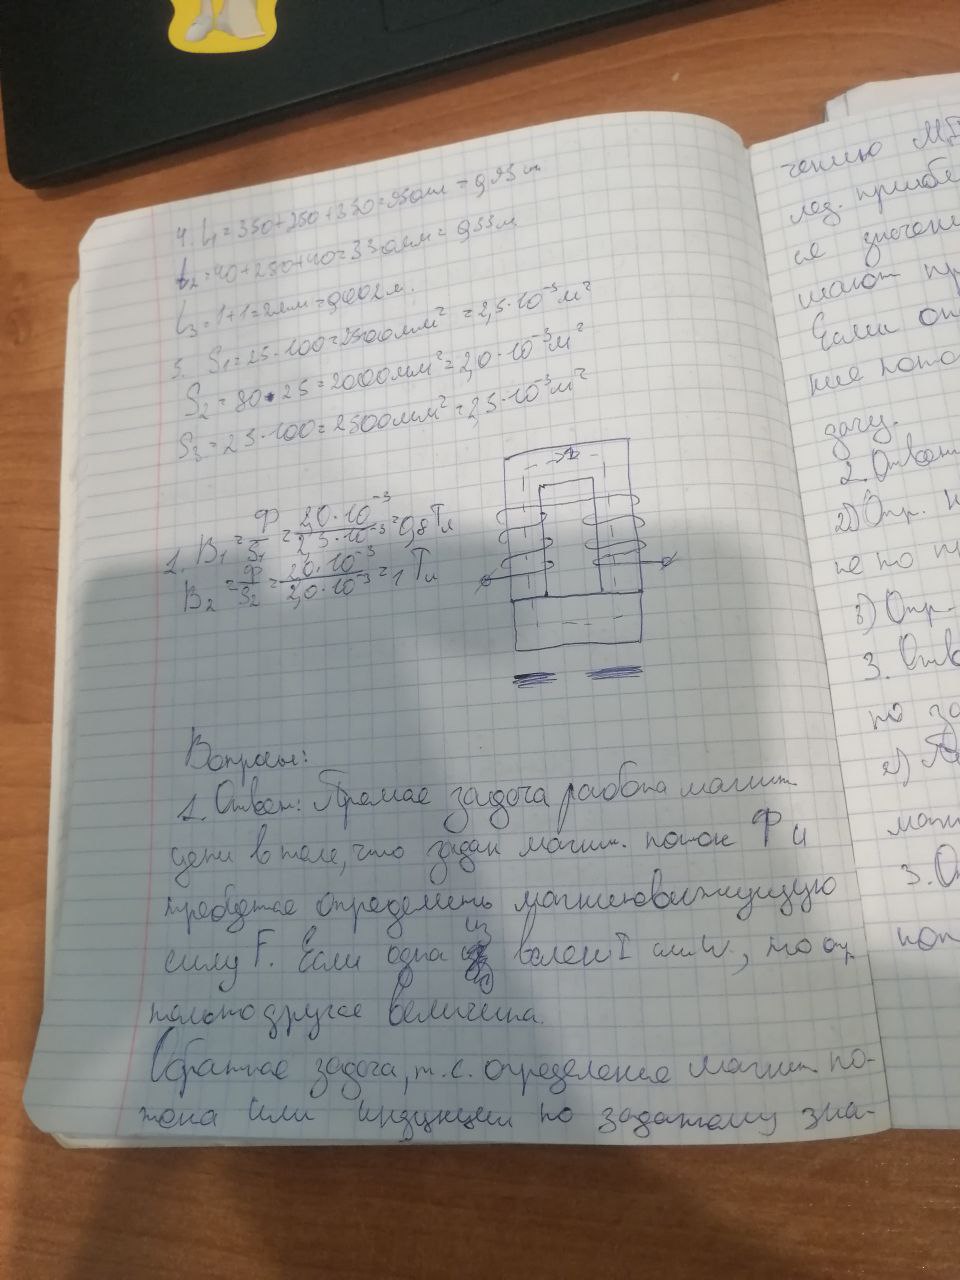 4. L₁=350+250+350=950мм=0,95 м
L₂=40+250+40=330мм=0,33 м
L₃=1+1=2мм=0,002м.
5. S₁=25·100=2500мм²=2,5·10⁻³м²
S₂=80·25=2000мм²=2,0·10⁻³м²
S₃=25·100=2500мм²=2,5·10⁻³м²
1. B₁=Ф/S₁=2,0·10⁻³/2,5·10⁻³=0,8Тл
B₂=Ф/S₂=2,0·10⁻³/2,0·10⁻³=1 Тл
Вопросы:
1. Ответ: Прямая задача магнит
цепи в том, что задан магн. поток Ф и
требуется определить магнитовижущую
силу F. Если одна из велен I или W, то
только другая величина.
Обратная задача, т.е. определение магнит по-
тока или индукции по заданому зна-
чению
лед.
ся значен
шают
Если
ние пото
дачу.
2. Ответ
2) Опр.
не по
3) Опр-
3. Отв
по за
2)
магн
3. О